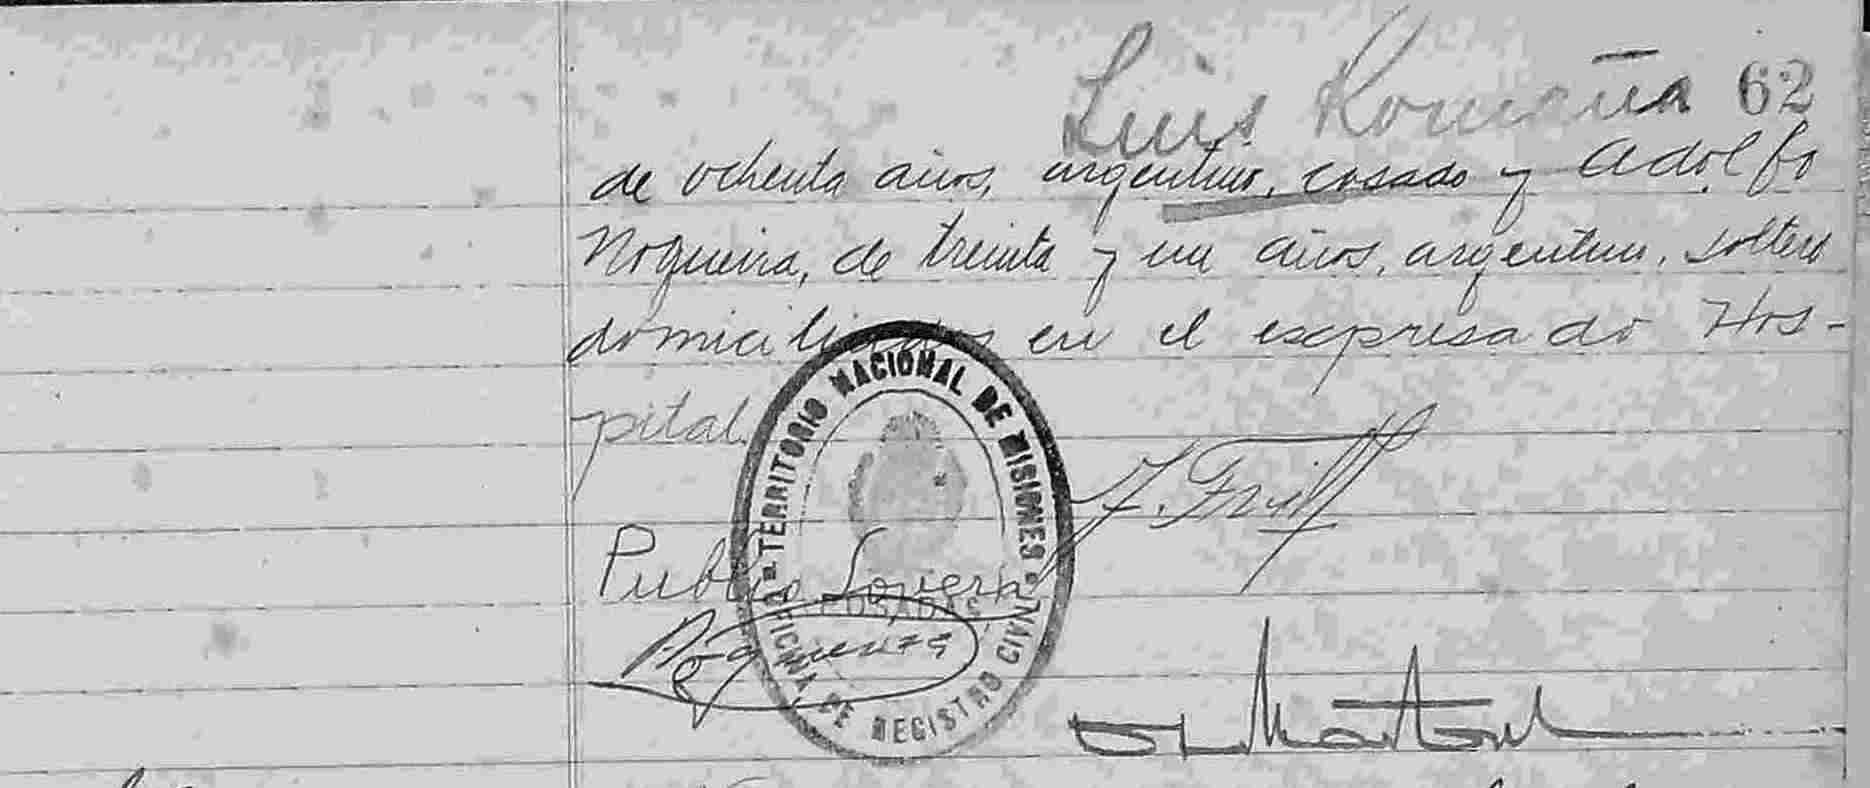 Luis Romaña 62
de ochenta años, argentino, casado y Adolfo
Nogueira, de treinta y un años, argentino, soltero
domiciliados en el expresado Hos-
pital.
TERRITORIO NACIONAL DE MISIONES
POSADAS
OFICINA DE REGISTRO CIVIL
Publio Lovera